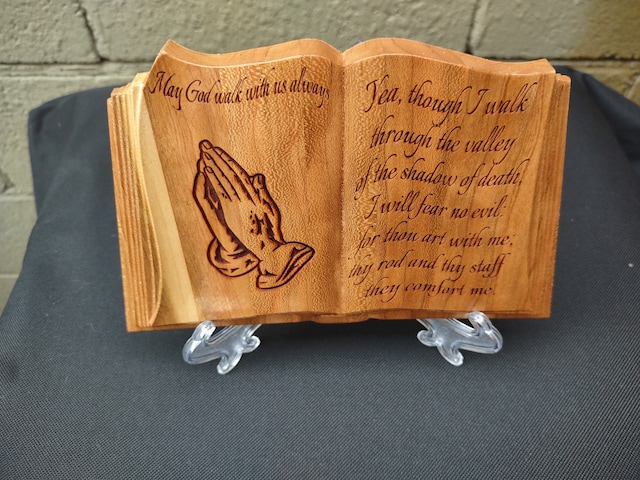 May God walk with us always
Yea, though I walk
through the valley
of the shadow of death,
I will fear no evil:
for thou art with me;
thy rod and thy staff
they comfort me.